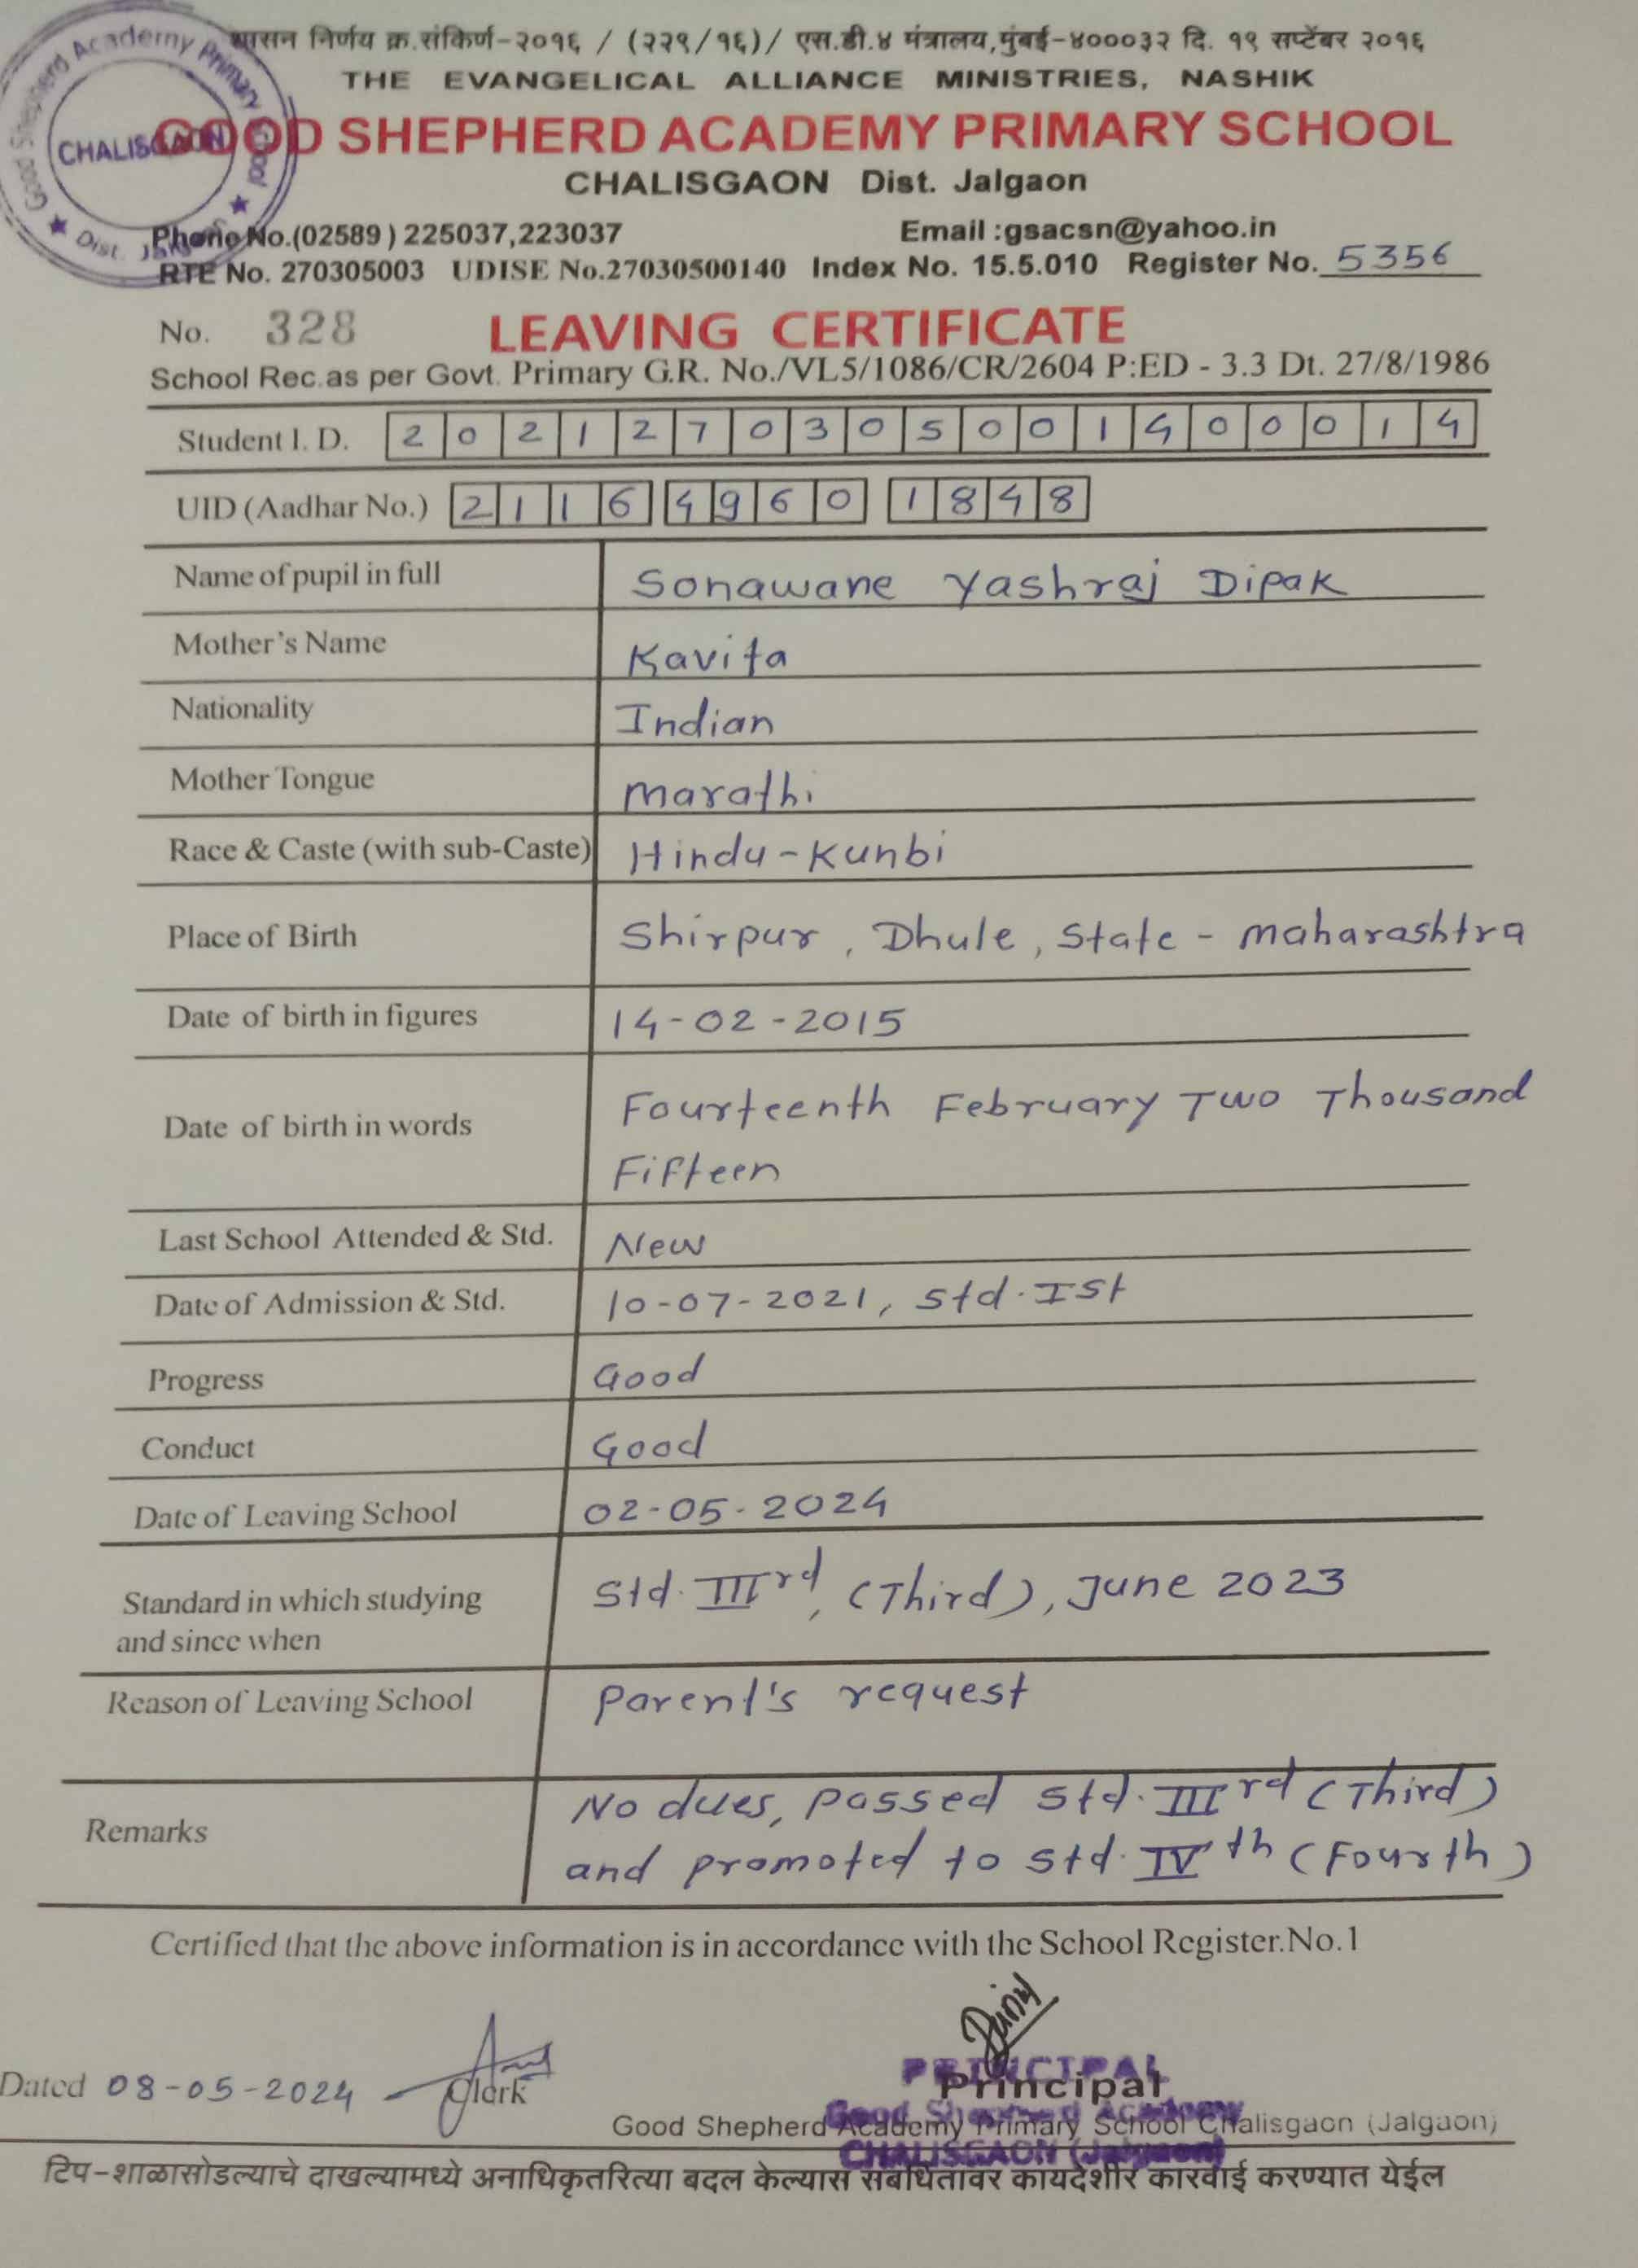 शासन निर्णय क्र.संकिर्ण-२०१६ / (२२९/१६)/ एस.डी.४ मंत्रालय,मुंबई-४०००३२ दि. १९ सप्टेंबर २०१६
THE EVANGELICAL ALLIANCE MINISTRIES, NASHIK
GOOD SHEPHERD ACADEMY PRIMARY SCHOOL
CHALISGAON Dist. Jalgaon
Good Shepherd Academy Primary School ★ Dist. Jalgaon ★
CHALISGAON
Phone No.(02589) 225037,223037 Email :gsacsn@yahoo.in
RTE No. 270305003 UDISE No.27030500140 Index No. 15.5.010 Register No. 5356
No. 328 LEAVING CERTIFICATE
School Rec.as per Govt. Primary G.R. No./VL5/1086/CR/2604 P:ED - 3.3 Dt. 27/8/1986
Student I. D. 2 0 2 1 2 7 0 3 0 5 0 0 1 4 0 0 0 1 4
UID (Aadhar No.) 2116 4960 1848
Name of pupil in full Sonawane Yashraj Dipak
Mother's Name Kavita
Nationality Indian
Mother Tongue Marathi
Race & Caste (with sub-Caste) Hindu-Kunbi
Place of Birth Shirpur, Dhule, State - Maharashtra
Date of birth in figures 14-02-2015
Date of birth in words Fourteenth February Two Thousand
Fifteen
Last School Attended & Std. New
Date of Admission & Std. 10-07-2021, Std. Ist
Progress Good
Conduct Good
Date of Leaving School 02-05-2024
Standard in which studying Std. IIIrd, (Third), June 2023
and since when
Reason of Leaving School Parent's request
Remarks No dues, passed std. IIIrd (Third)
and promoted to std. IVth (Fourth)
Certified that the above information is in accordance with the School Register.No.1
Dated 08-05-2024 Clerk
PRINCIPAL
Principal
Good Shepherd Academy
Good Shepherd Academy Primary School Chalisgaon (Jalgaon)
CHALISGAON (Jalgaon)
टिप-शाळासोडल्याचे दाखल्यामध्ये अनाधिकृतरित्या बदल केल्यास संबंधितावर कायदेशीर कारवाई करण्यात येईल